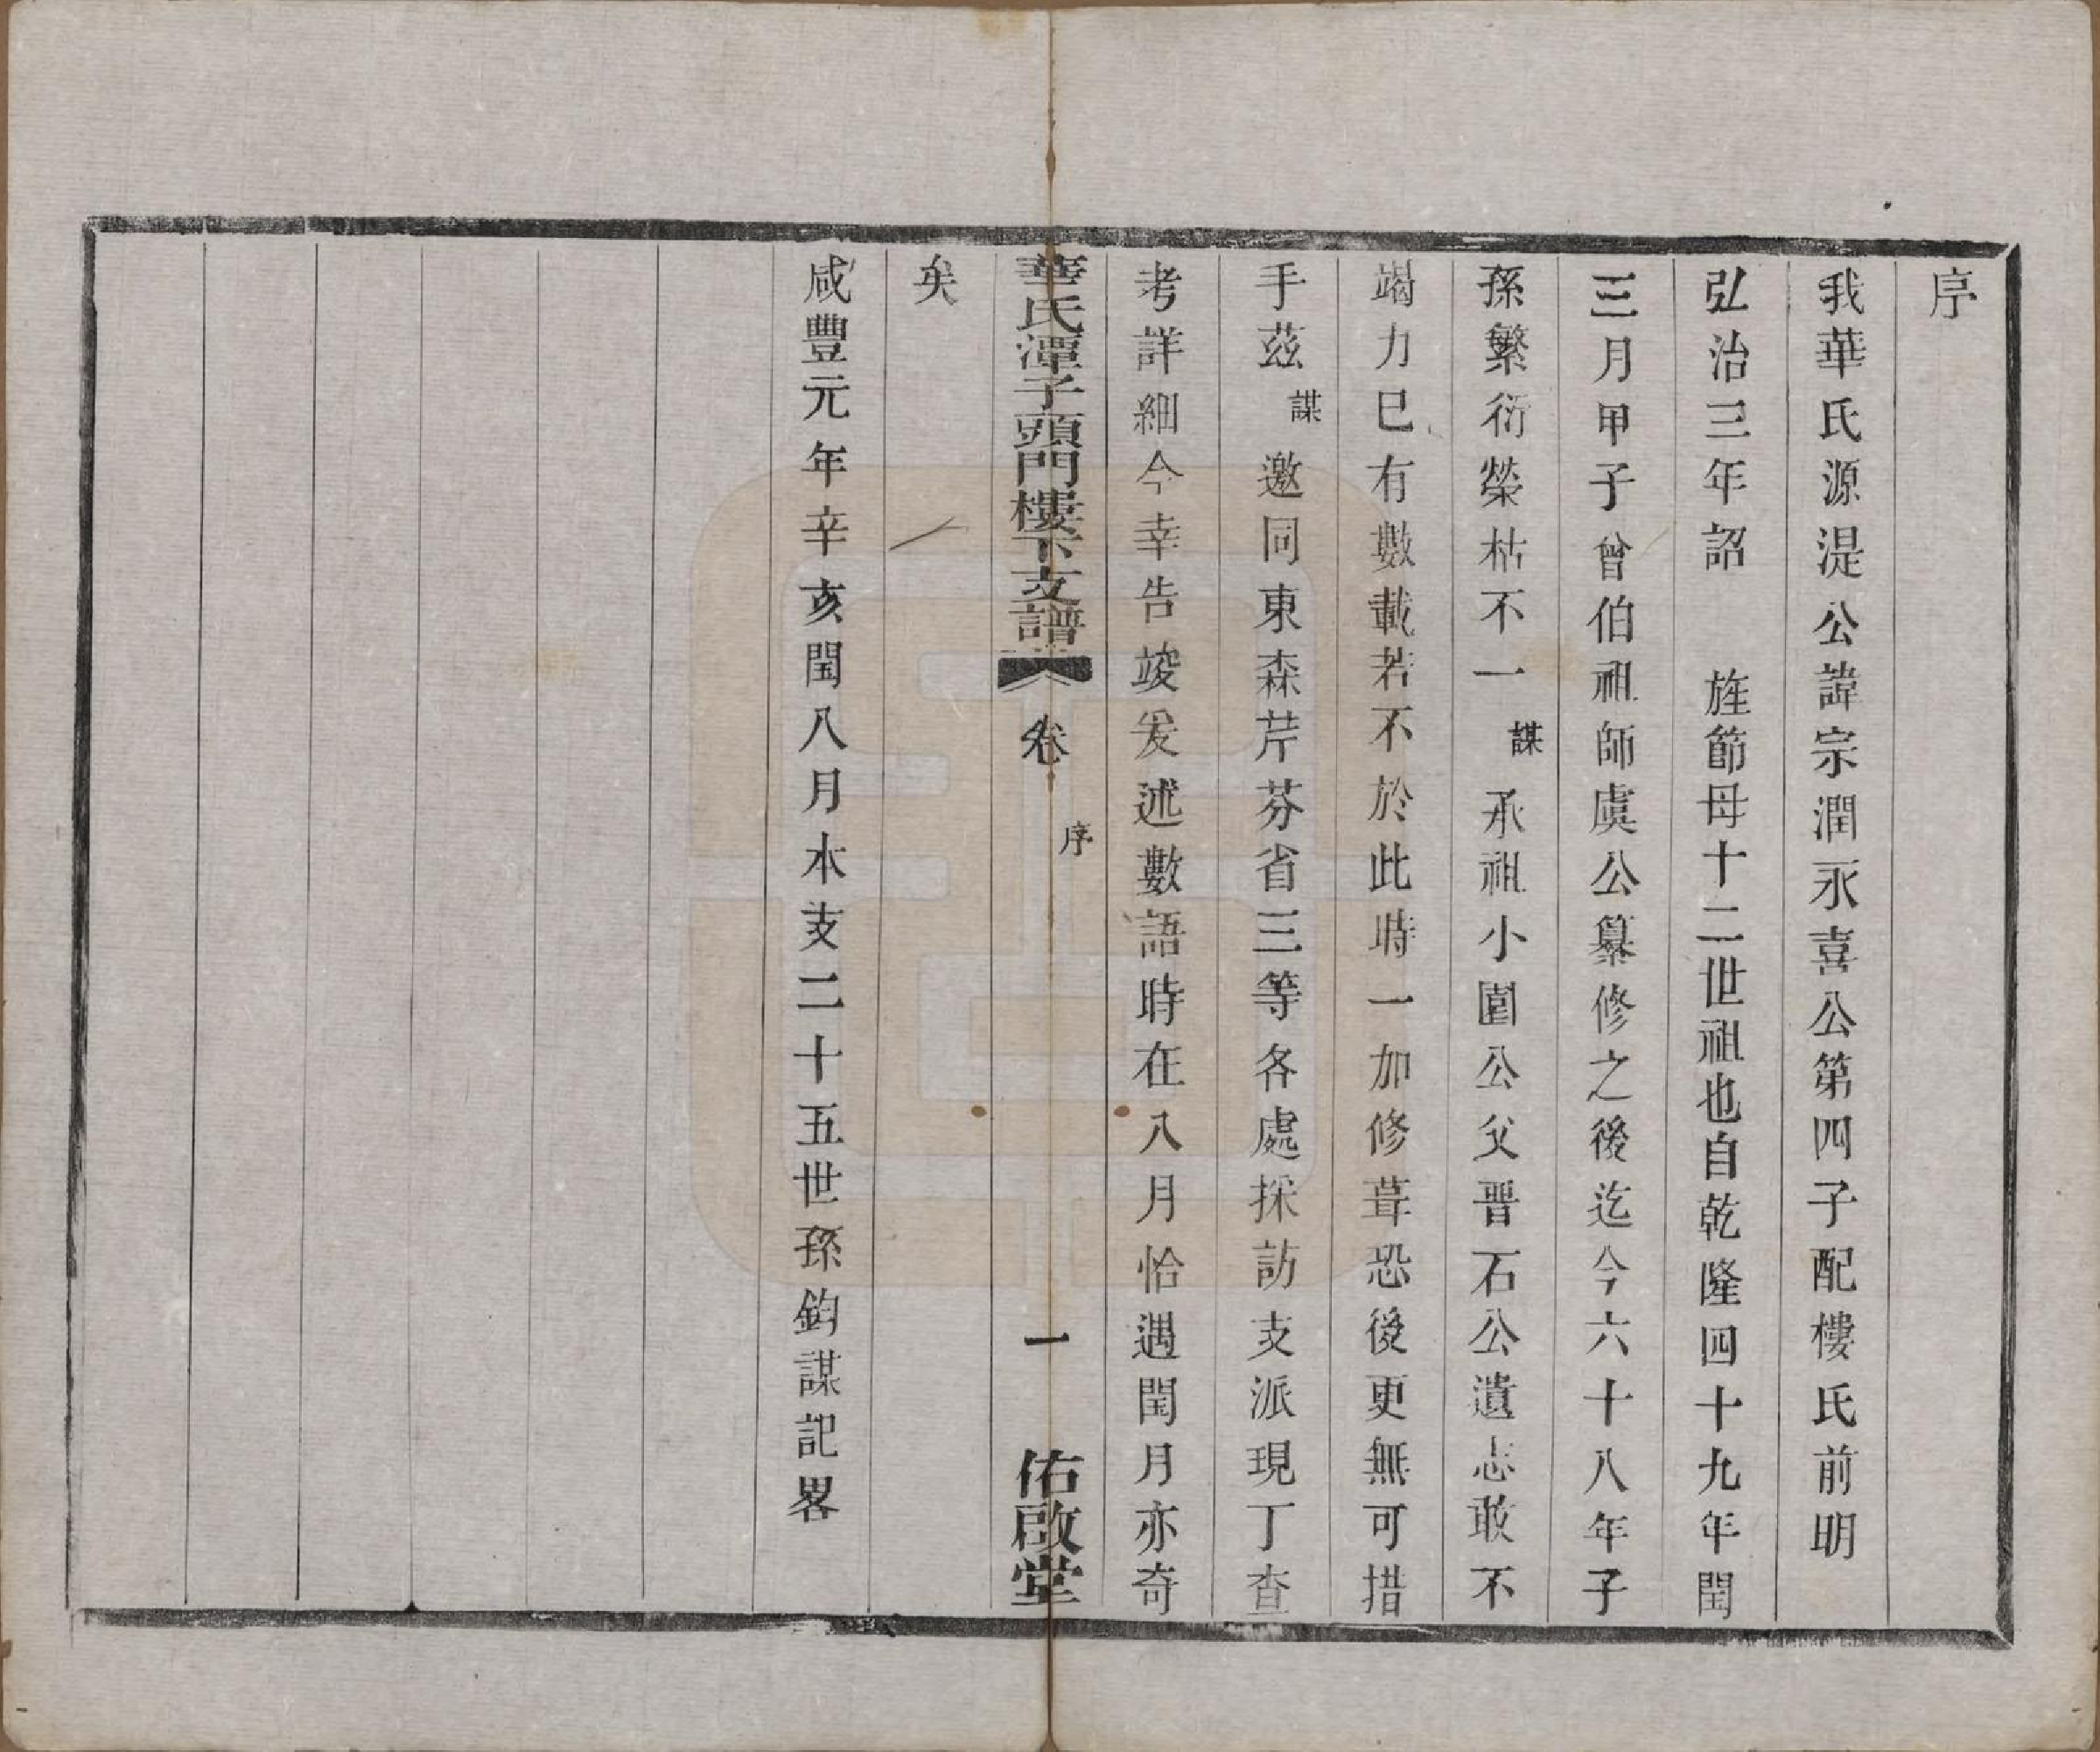 序
我華氏源湜公諱宗潤永喜公第四子配樓氏前明
弘治三年詔　旌節母十二世祖也自乾隆四十九年閏
三月甲子曾伯祖師虞公纂修之後迄今六十八年子
孫繁衍榮枯不一謀承祖小園公父晋石公遺志敢不
竭力巳有數載若不於此時一加修葺恐後更無可措
手茲謀邀同東森芹芬省三等各處採訪支派現丁查
考詳細今幸告竣爰述數語時在八月恰遇閏月亦奇
華氏潭子頭門樓下支譜　卷　序　一　佑啟堂
矣
咸豐元年辛亥閏八月本支二十五世孫鈞謀記畧